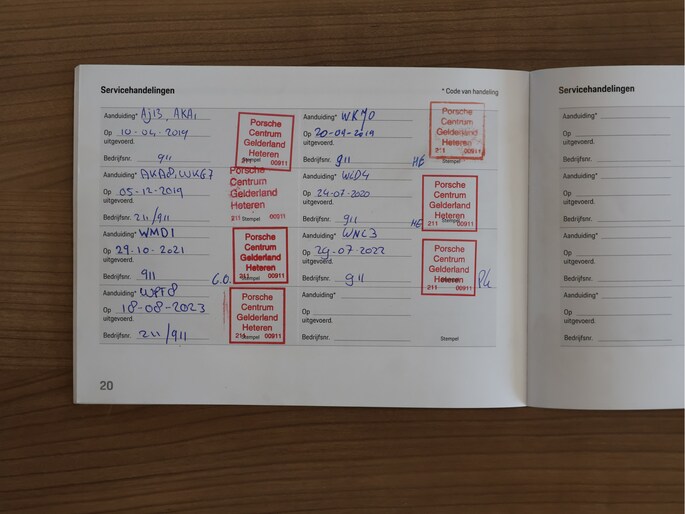 Servicehandelingen
* Code van handeling
Aanduiding* AJ13, AKA1
Op 10-04-2019
uitgevoerd.
Bedrijfsnr. 911
Stempel
Porsche
Centrum
Gelderland
Heteren
211 00911
Aanduiding* WK70
Op 20-09-2019
uitgevoerd.
Bedrijfsnr. 911
HB
Porsche
Centrum
Gelderland
Heteren
211 00911
Aanduiding* AKA8, WKG7
Op 05-12-2019
uitgevoerd.
Bedrijfsnr. 211/911
Stempel
Porsche
Centrum
Gelderland
Heteren
211 00911
Aanduiding* WLD4
Op 24-07-2020
uitgevoerd.
Bedrijfsnr. 911
Porsche
Centrum
Gelderland
Heteren
211 00911
Aanduiding* WMD1
Op 29-10-2021
uitgevoerd.
Bedrijfsnr. 911
G.O.
Porsche
Centrum
Gelderland
Heteren
211 00911
Aanduiding* WNC3
Op 29-07-2022
uitgevoerd.
Bedrijfsnr. 911
Porsche
Centrum
Gelderland
Heteren
211 00911
Aanduiding* WPT8
Op 18-08-2023
uitgevoerd.
Bedrijfsnr. 211/911
Stempel
Porsche
Centrum
Gelderland
Heteren
211 00911
Aanduiding*
Op
uitgevoerd.
Bedrijfsnr.
Stempel
20
Servicehandelingen
Aanduiding*
Op
uitgevoerd.
Bedrijfsnr.
Aanduiding*
Op
uitgevoerd.
Bedrijfsnr.
Aanduiding*
Op
uitgevoerd.
Bedrijfsnr.
Aanduiding*
Op
uitgevoerd.
Bedrijfsnr.